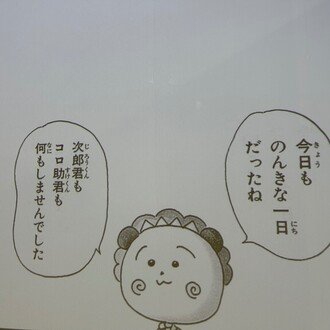 今日も
のんきな一日
だったね
次郎君も
コロ助君も
何もしませんでした